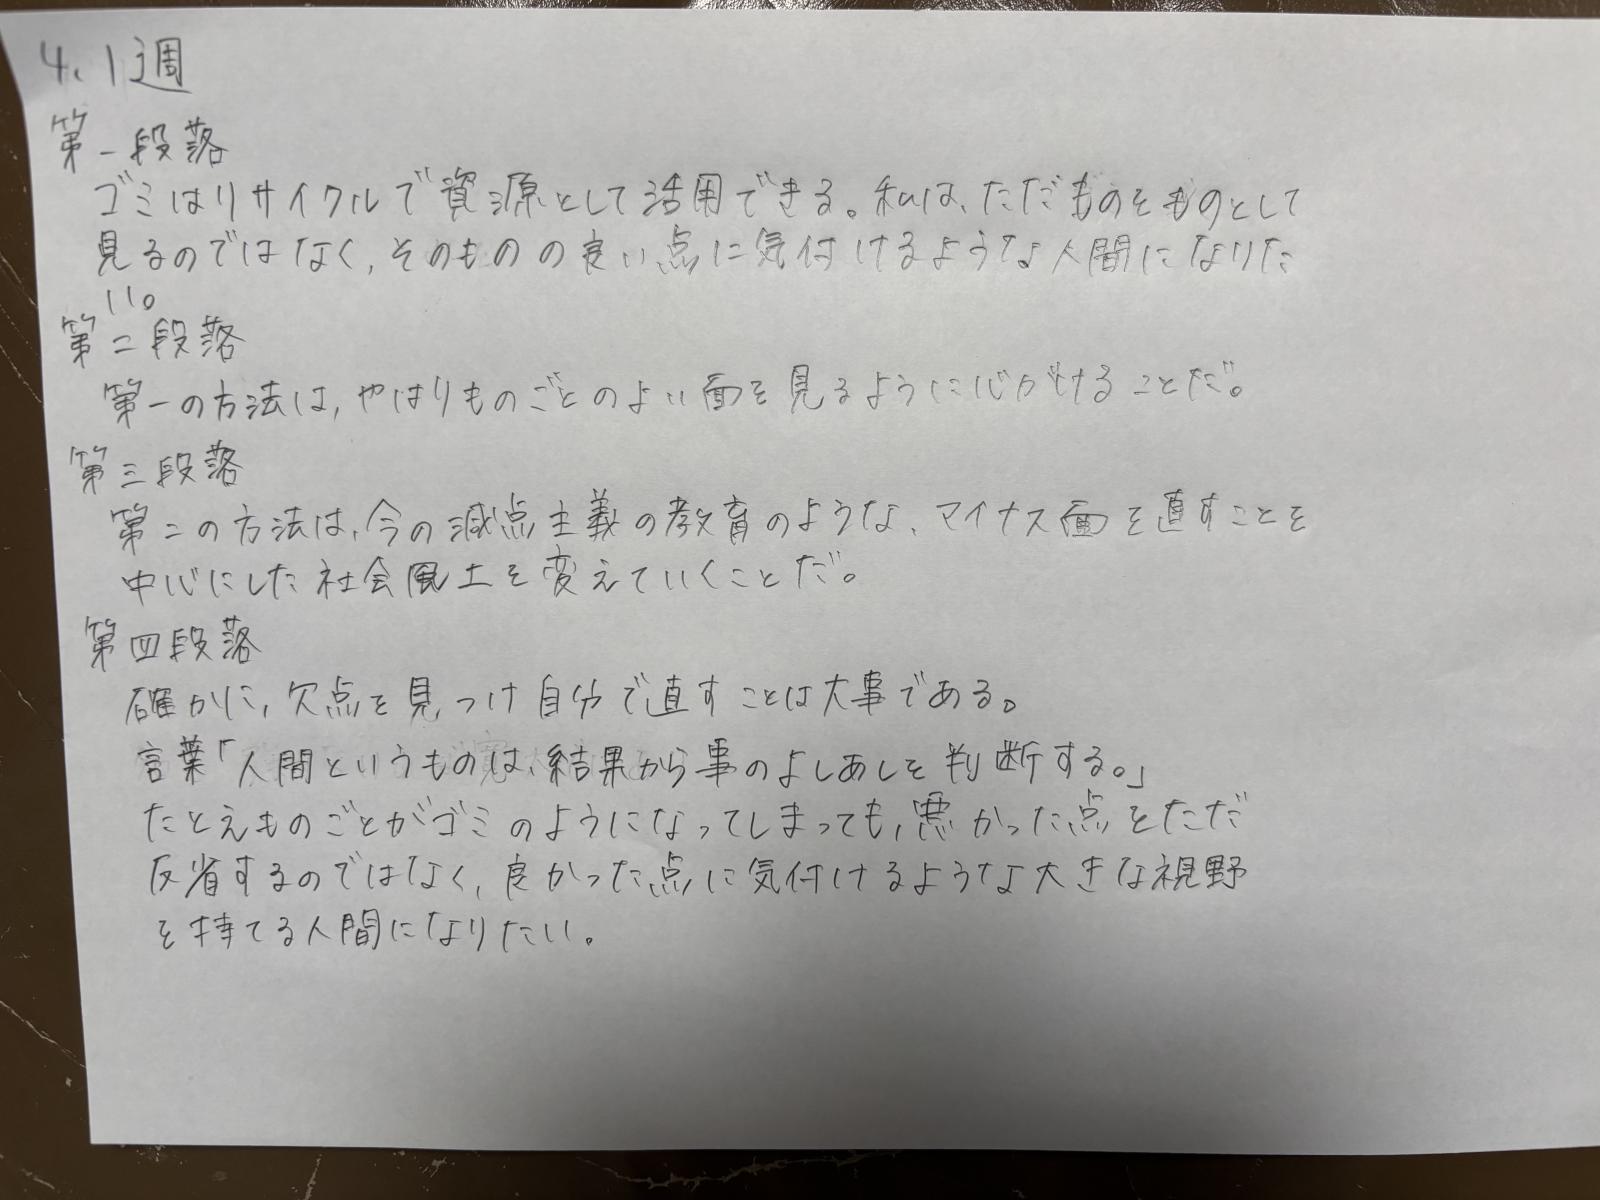 4.1週
第一段落
ゴミはリサイクルで資源として活用できる。私は、ただものをものとして
見るのではなく、そのものの良い点に気付けるような人間になりた
い。
第二段落
第一の方法は、やはりものごとのよい面を見るように心がけることだ。
第三段落
第二の方法は、今の減点主義の教育のような、マイナス面を直すことを
中心にした社会風土を変えていくことだ。
第四段落
確かに、欠点を見つけ自分で直すことは大事である。
言葉「人間というものは、結果から事のよしあしを判断する。」
たとえものごとがゴミのようになってしまっても、悪かった点をただ
反省するのではなく、良かった点に気付けるような大きな視野
を持てる人間になりたい。